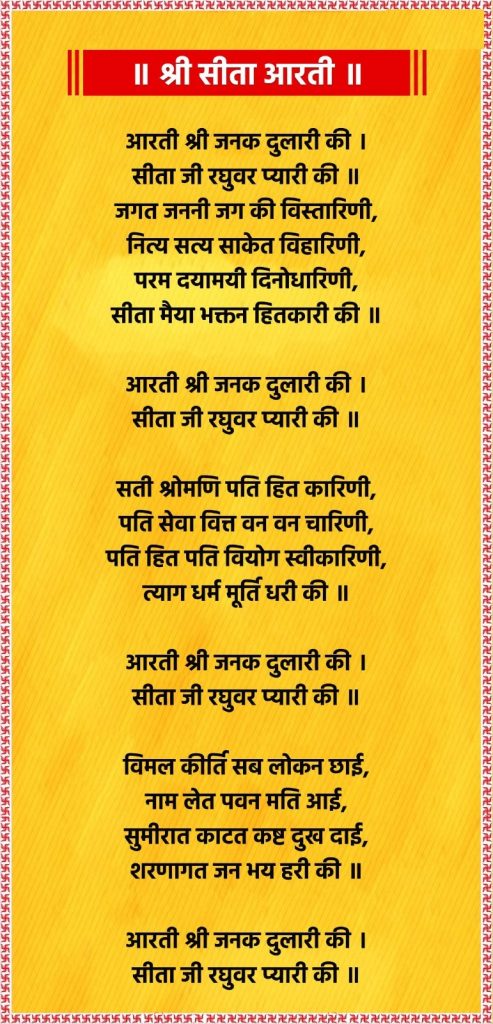 ॥ श्री सीता आरती ॥
आरती श्री जनक दुलारी की ।
सीता जी रघुवर प्यारी की ॥
जगत जननी जग की विस्तारिणी,
नित्य सत्य साकेत विहारिणी,
परम दयामयी दिनोधारिणी,
सीता मैया भक्तन हितकारी की ॥
आरती श्री जनक दुलारी की ।
सीता जी रघुवर प्यारी की ॥
सती श्रोमणि पति हित कारिणी,
पति सेवा वित्त वन वन चारिणी,
पति हित पति वियोग स्वीकारिणी,
त्याग धर्म मूर्ति धरी की ॥
आरती श्री जनक दुलारी की ।
सीता जी रघुवर प्यारी की ॥
विमल कीर्ति सब लोकन छाई,
नाम लेत पवन मति आई,
सुमीरात काटत कष्ट दुख दाई,
शरणागत जन भय हरी की ॥
आरती श्री जनक दुलारी की ।
सीता जी रघुवर प्यारी की ॥